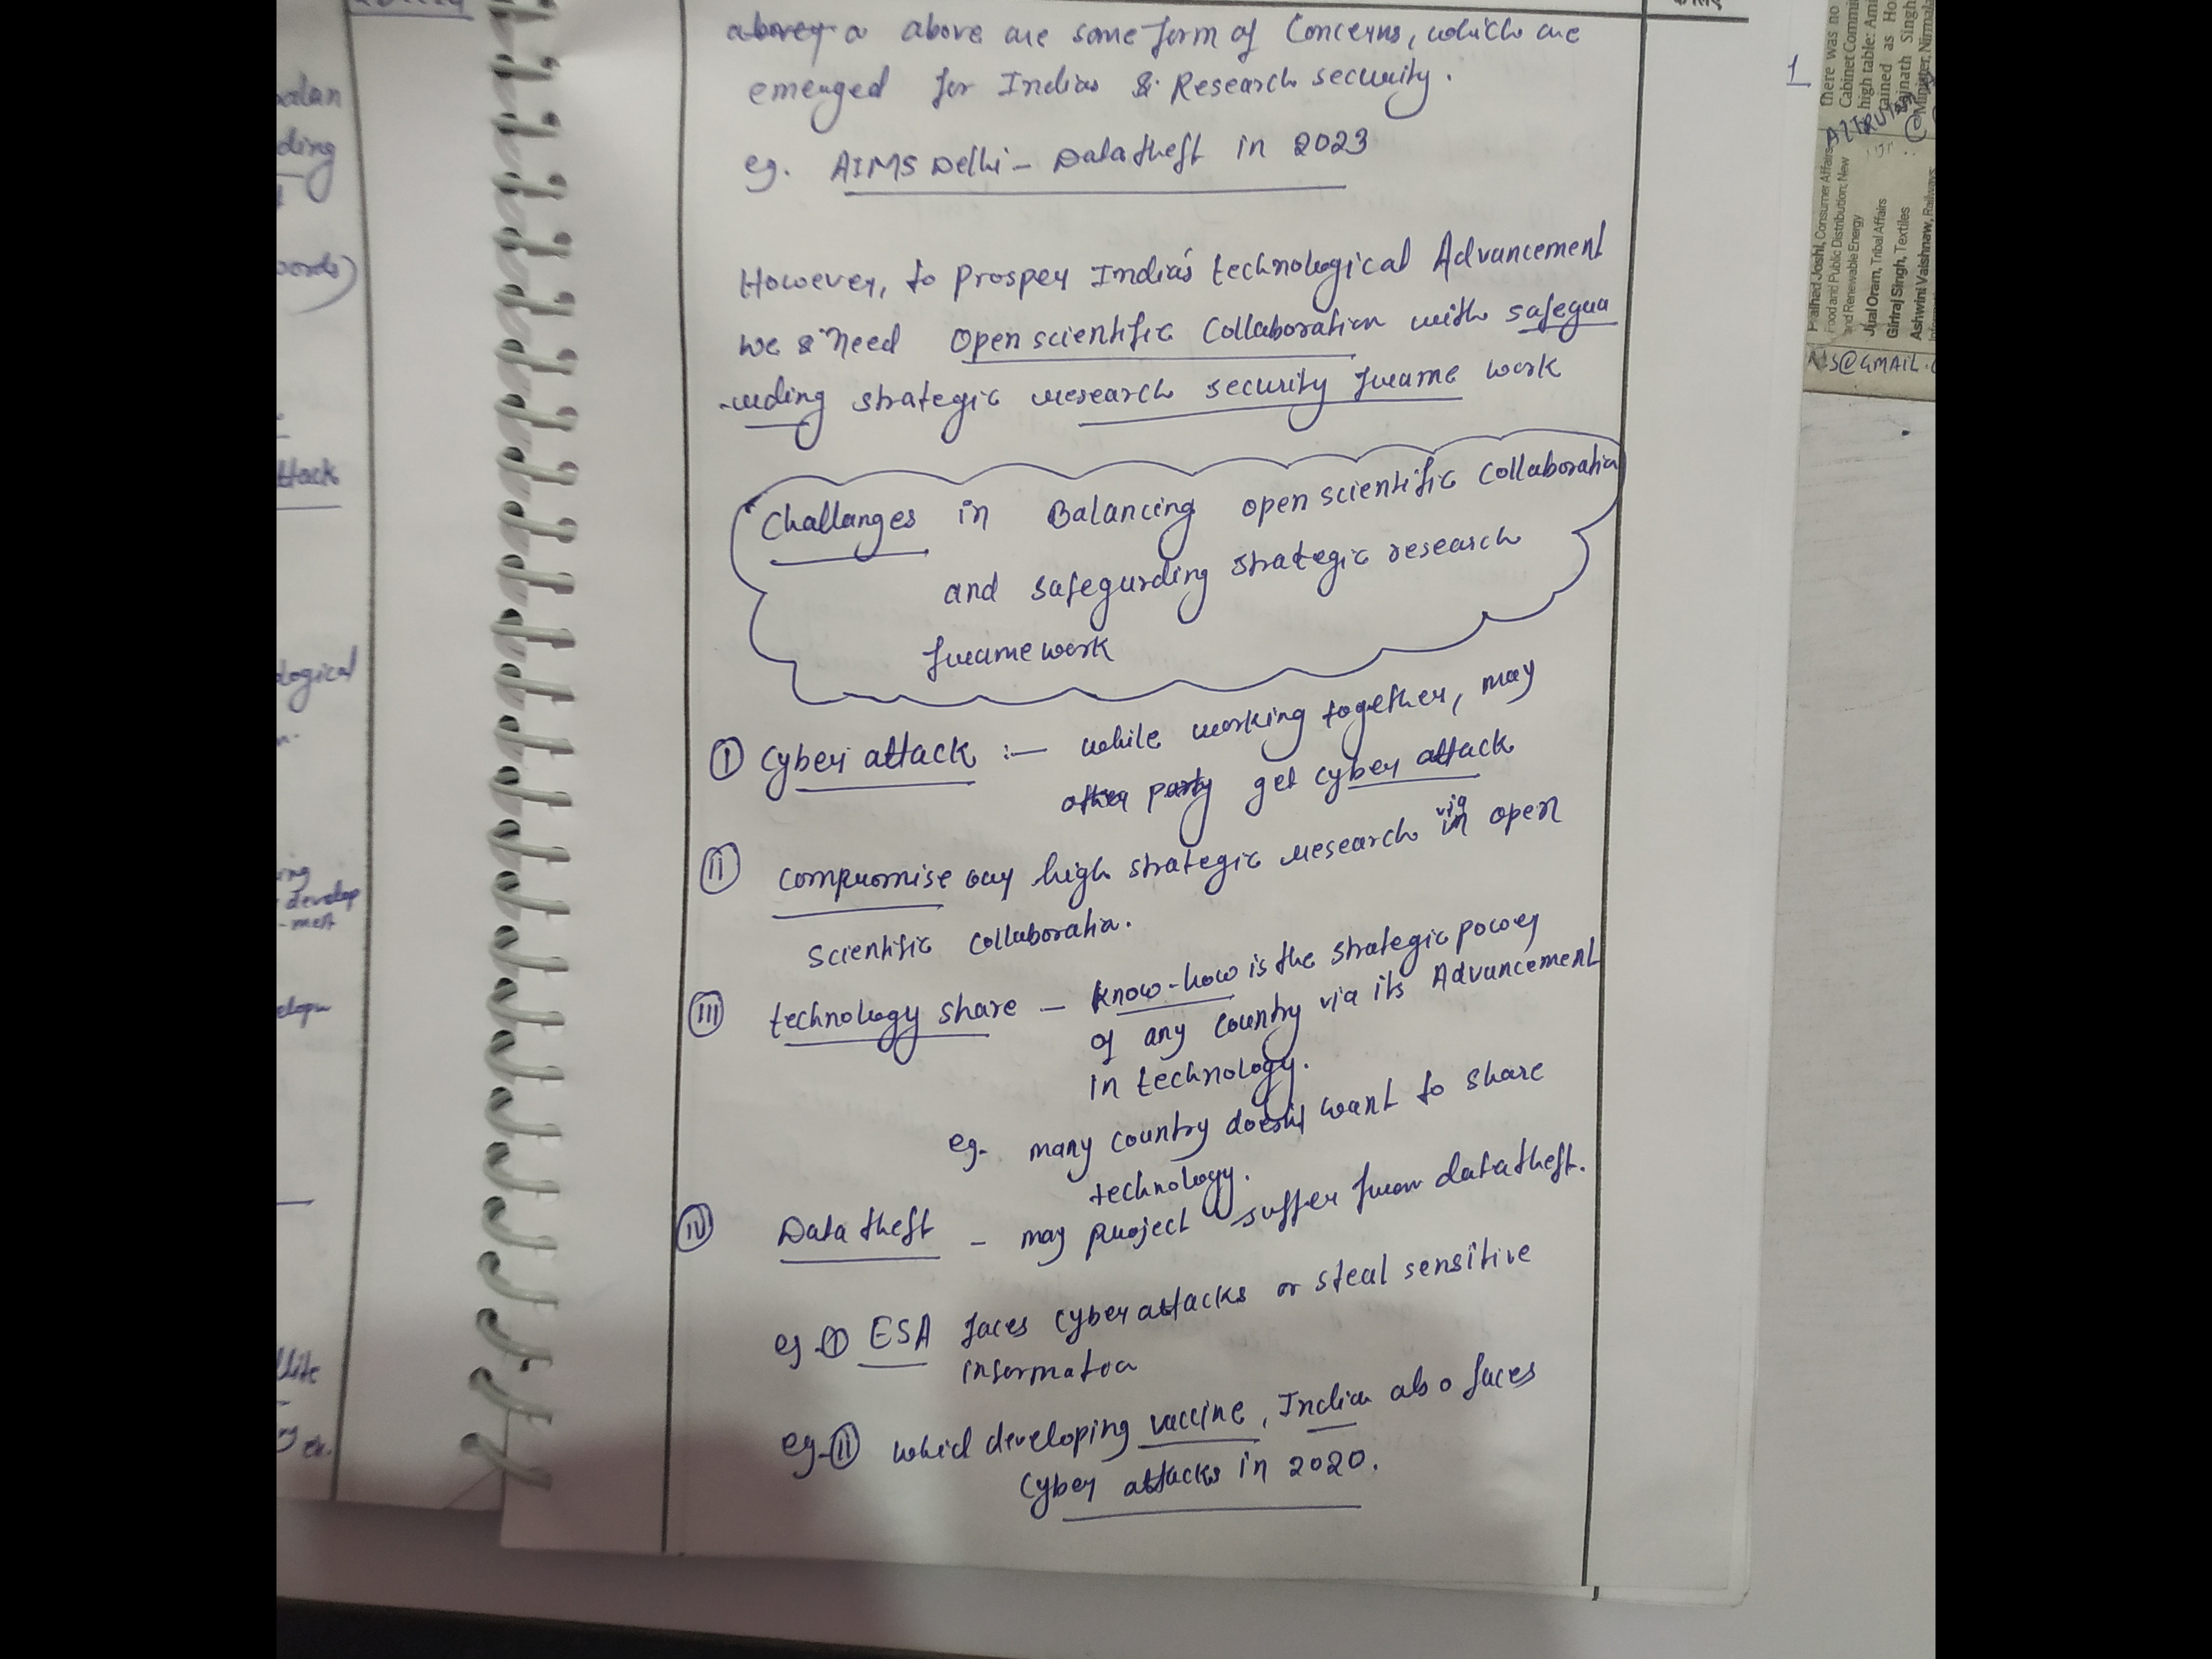 above are some form of Concerns, which are
emerged for Indias & Research security.
eg. AIMS Delhi - Data theft in 2023
However, to prosper India's technological Advancement
we need Open scientific Collaboration with safegua
-rding strategic research security frame work
Challanges in Balancing open scientific collaboratio
and safegurding strategic research
frame work
(I) Cyber attack :- while working together, may
other party get cyber attack
(II) compromise any high strategic research via open
scientific collaboration.
(III) technology share - know-how is the strategic power
of any country via its Advancement
in technology.
eg. many country doesn't want to share
technology.
(IV) Data theft - may project suffer from data theft.
eg (I) ESA faces cyber attacks or steal sensitive
information
eg (II) which developing vaccine, India also faces
Cyber attacks in 2020.
alan
ding
words)
ttack
logical
ing
- develop
- ment
1
there was no
Cabinet Commi
high table: Ami
tained as Ho
ajnath Singh
Minister, Nirmala
Pralhad Joshi, Consumer Affairs,
Food and Public Distribution; New
and Renewable Energy
Jual Oram, Tribal Affairs
Giriraj Singh, Textiles
Ashwini Vaishnaw, Railways;
@GMAIL.